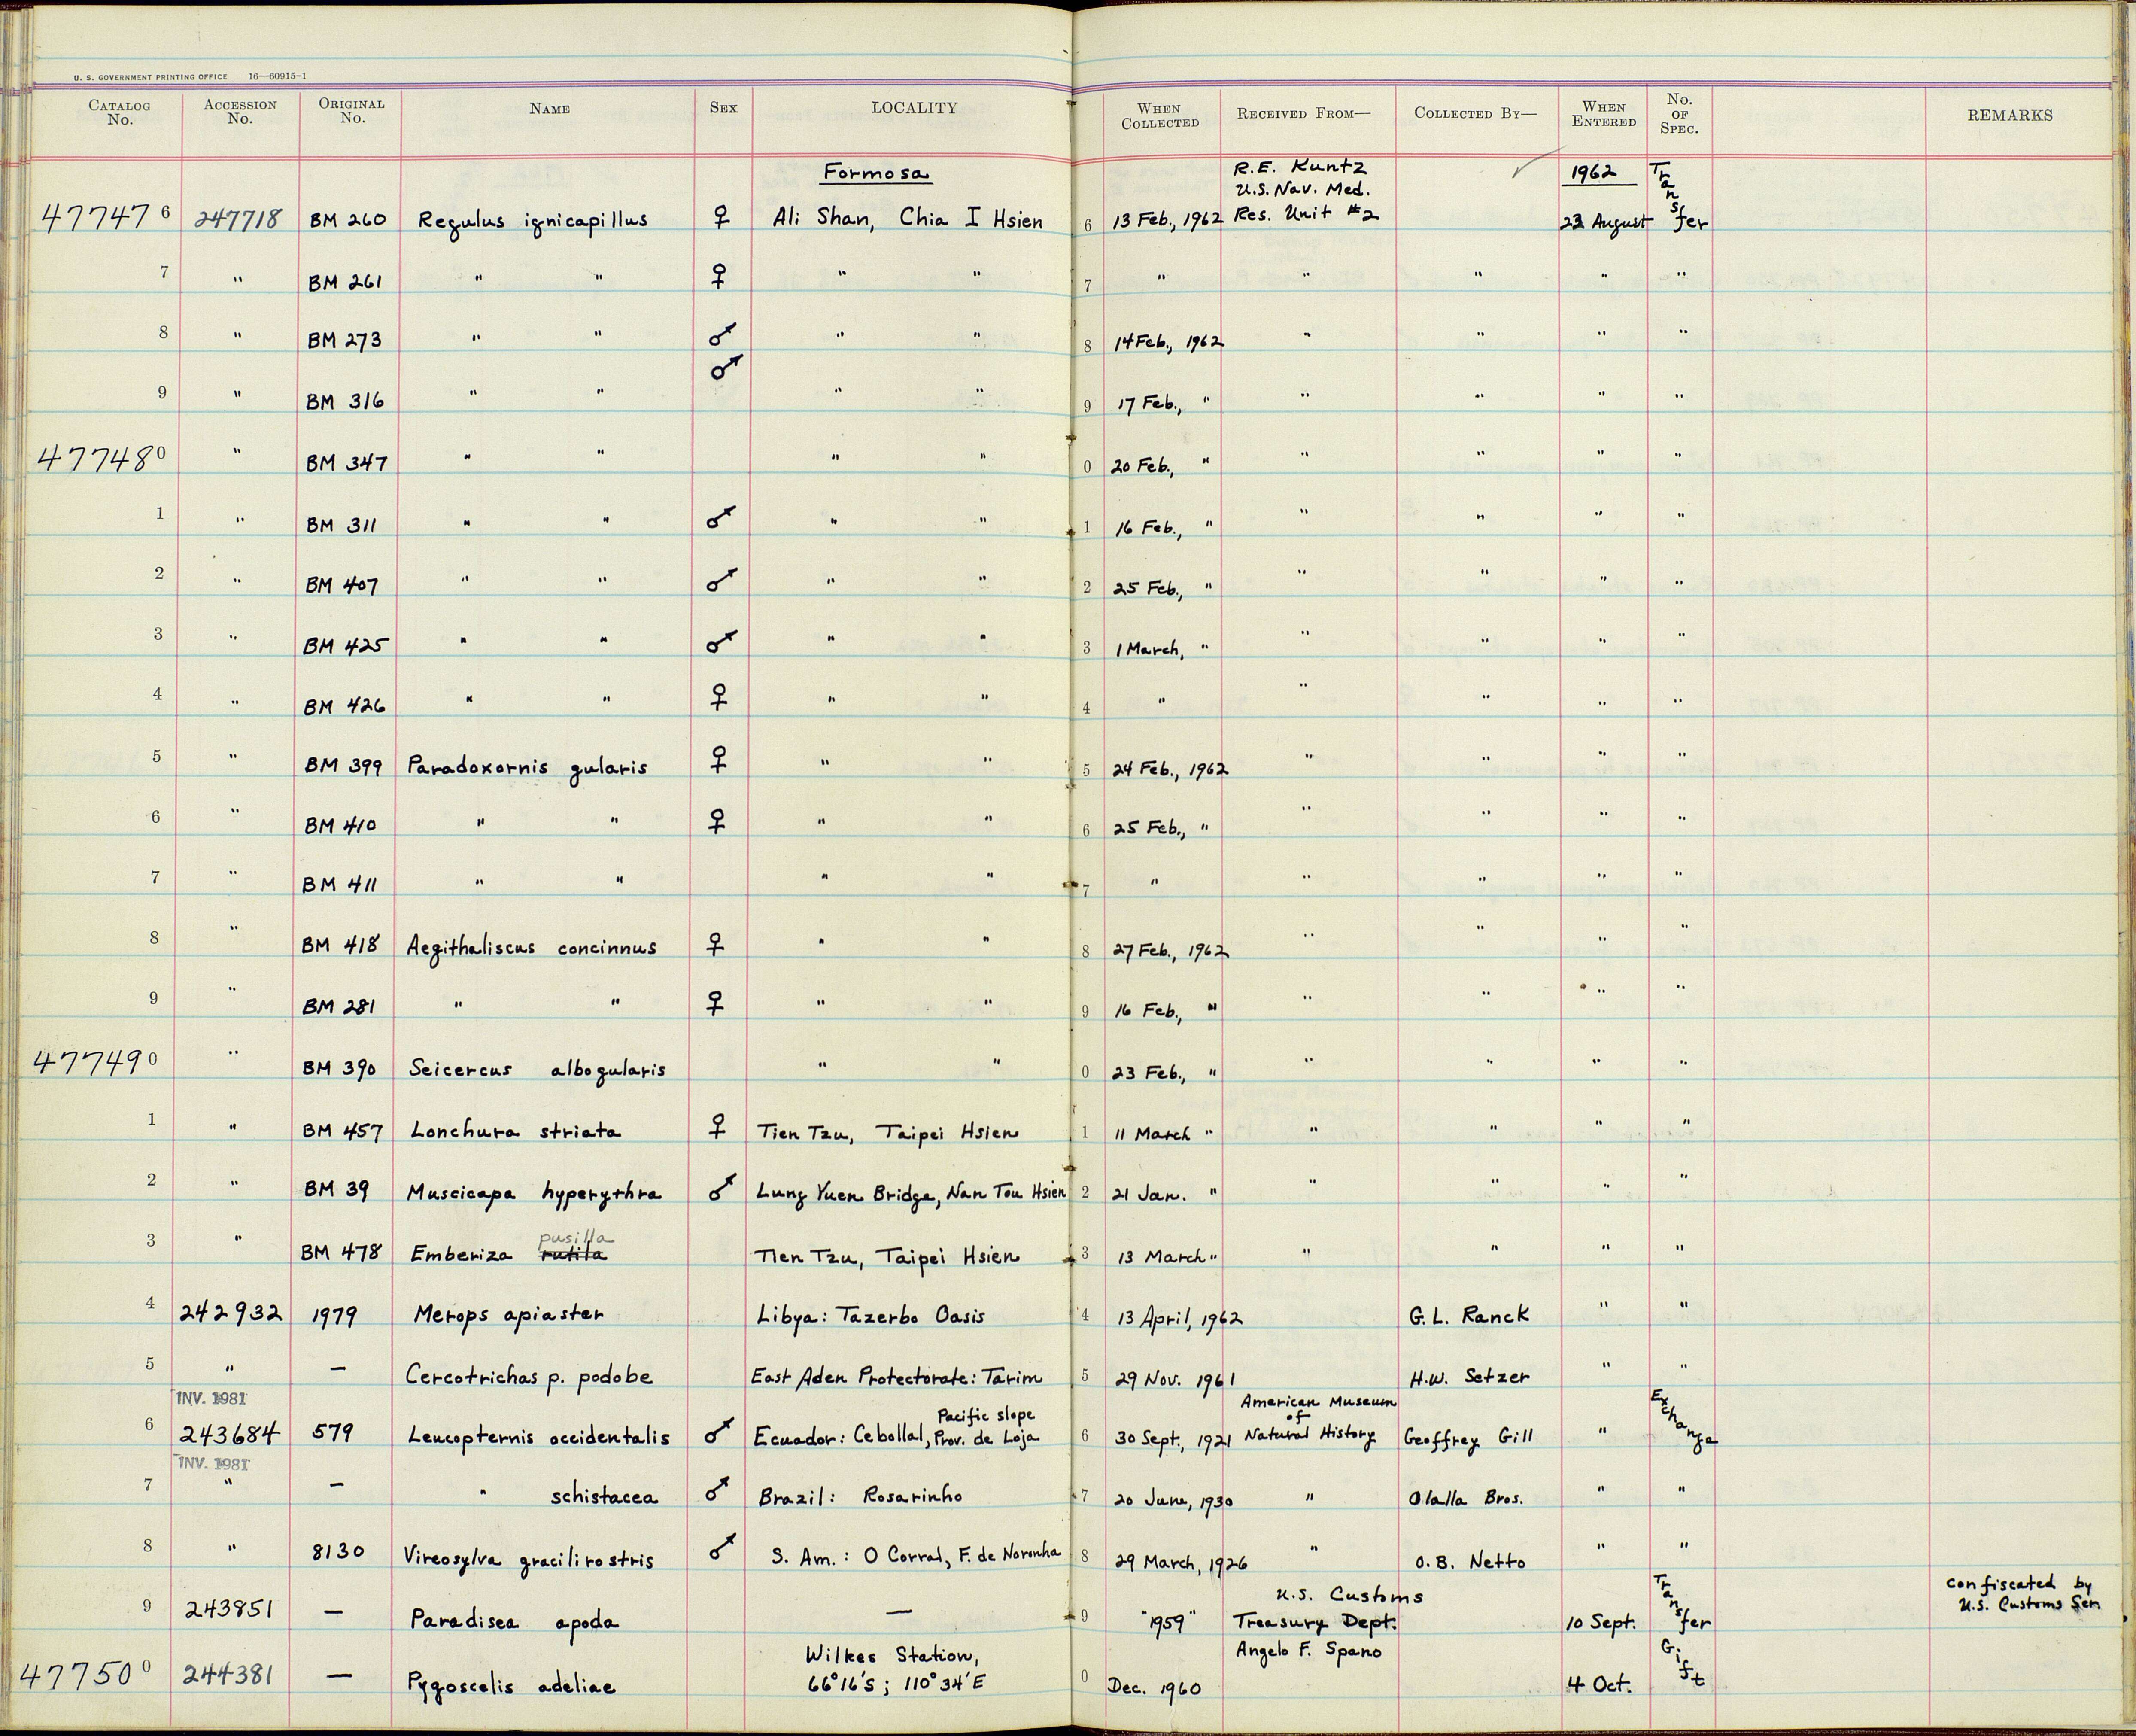 U. S. GOVERNMENT PRINTING OFFICE 16—60915-1
CATALOG No. ACCESSION No. ORIGINAL No. NAME SEX LOCALITY WHEN COLLECTED RECEIVED FROM— COLLECTED BY— WHEN ENTERED No. OF SPEC. REMARKS
Formosa R.E. Kuntz ✓ 1962
U.S. Nav. Med.
477476 247718 BM 260 Regulus ignicapillus ♀ Ali Shan, Chia I Hsien 6 13 Feb., 1962 Res. Unit #2 23 August Transfer
7 " BM 261 " " ♀ " " 7 " " " " "
8 " BM 273 " " ♂ " " 8 14 Feb., 1962 " " " "
♂
9 " BM 316 " " " " 9 17 Feb., " " " " "
477480 " BM 347 " " " " 0 20 Feb., " " " " "
1 " BM 311 " " ♂ " " 1 16 Feb., " " " " "
2 " BM 407 " " ♂ " " 2 25 Feb., " " " " "
3 " BM 425 " " ♂ " " 3 1 March, " " " " "
4 " BM 426 " " ♀ " " 4 " " " " "
5 " BM 399 Paradoxornis gularis ♀ " " 5 24 Feb., 1962 " " " "
6 " BM 410 " " ♀ " " 6 25 Feb., " " " " "
7 " BM 411 " " " " 7 " " " " "
8 " BM 418 Aegithaliscus concinnus ♀ " " 8 27 Feb., 1962 " " " "
9 " BM 281 " " ♀ " " 9 16 Feb., " " " " "
477490 " BM 390 Seicercus albogularis " " 0 23 Feb., " " " " "
1 " BM 457 Lonchura striata ♀ Tien Tzu, Taipei Hsien 1 11 March " " " " "
2 " BM 39 Muscicapa hyperythra ♂ Lung Yuen Bridge, Nan Tou Hsien 2 21 Jan. " " " " "
pusilla
3 " BM 478 Emberiza rutila Tien Tzu, Taipei Hsien 3 13 March " " " " "
4 242932 1979 Merops apiaster Libya: Tazerbo Oasis 4 13 April, 1962 G.L. Ranck " "
5 " — Cercotrichas p. podobe East Aden Protectorate: Tarim 5 29 Nov. 1961 H.W. Setzer " "
INV. 1981 American Museum
Pacific slope of
6 243684 579 Leucopternis occidentalis ♂ Ecuador: Cebollal, Prov. de Loja 6 30 Sept., 1921 Natural History Geoffrey Gill " Exchange
INV. 1981
7 " — " schistacea ♂ Brazil: Rosarinho 7 20 June, 1930 " Olalla Bros. " "
8 " 8130 Vireosylva gracilirostris ♂ S. Am.: O Corral, F. de Noronha 8 29 March, 1926 " O.B. Netto " "
U.S. Customs confiscated by
9 243851 — Paradisea apoda — 9 "1959" Treasury Dept. 10 Sept. Transfer U.S. Customs Ser.
Wilkes Station, Angelo F. Spano
477500 244381 — Pygoscelis adeliae 66°16'S; 110°34'E 0 Dec. 1960 4 Oct. Gift